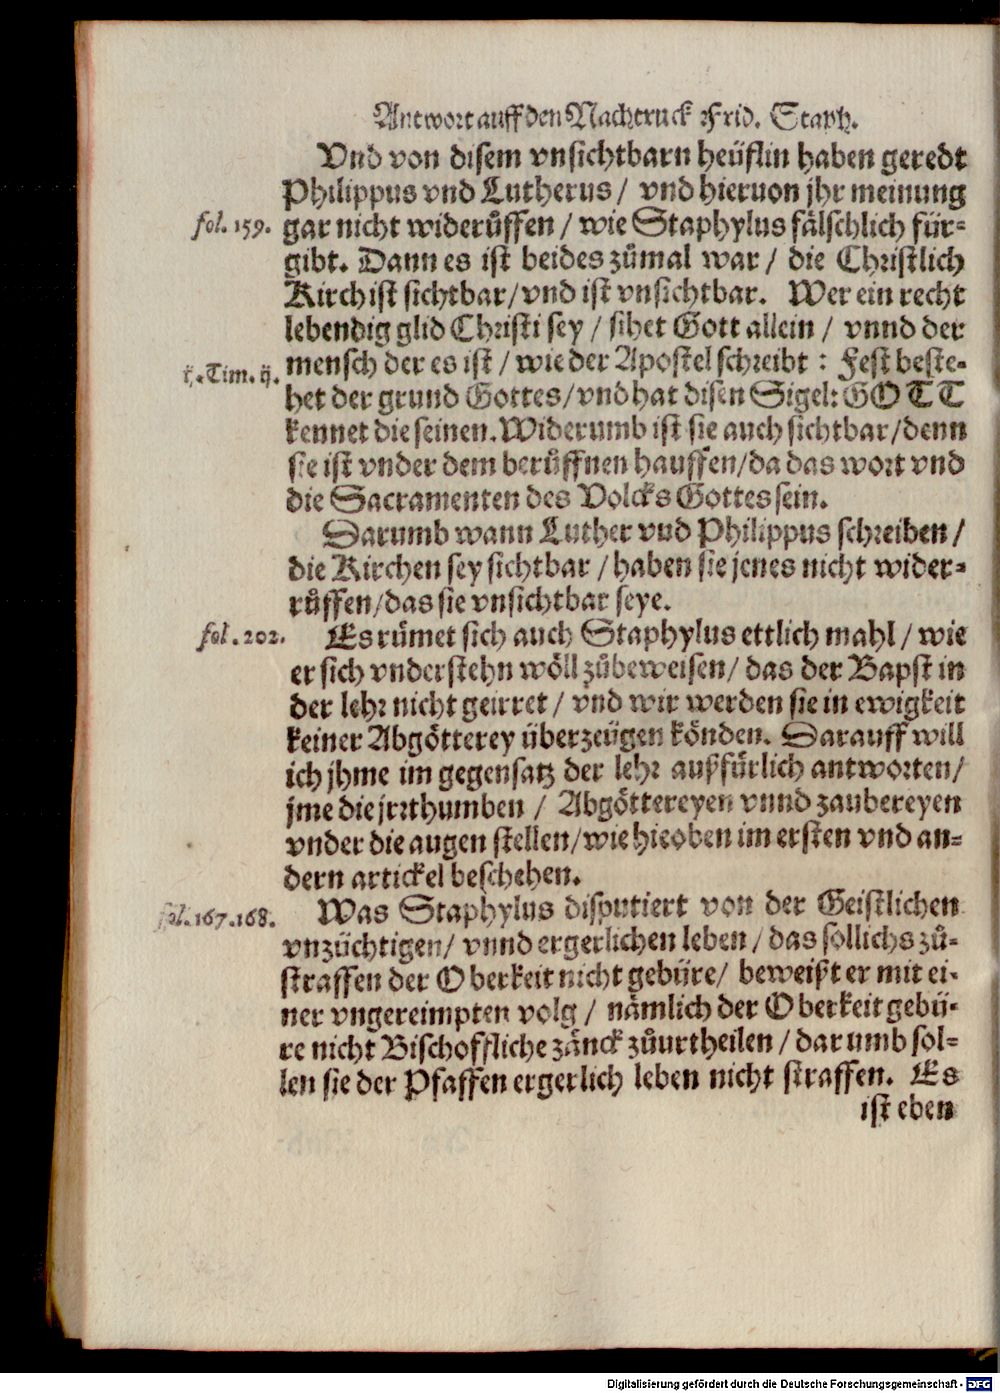 Antwort auff den Nachtruck Frid. Staph.
Vnd von disem vnsichtbarn heüflin haben geredt
Philippus vnd Lutherus / vnd hieruon jhr meinung
fol. 159. gar nicht widerůffen / wie Staphylus fälschlich für-
gibt. Dann es ist beides zůmal war / die Christlich
Kirch ist sichtbar / vnd ist vnsichtbar. Wer ein recht
lebendig glid Christi sey / sihet Gott allein / vnnd der
ij. Tim. ij. mensch der es ist / wie der Apostel schreibt : Fest beste-
het der grund Gottes / vnd hat disen Sigel: GOTT
kennet die seinen. Widerumb ist sie auch sichtbar / denn
sie ist vnder dem berůffnen hauffen / da das wort vnd
die Sacramenten des Volcks Gottes sein.
Darumb wann Luther vnd Philippus schreiben /
die Kirchen sey sichtbar / haben sie jenes nicht wider-
růffen / das sie vnsichtbar seye.
fol. 202. Es rümet sich auch Staphylus ettlich mahl / wie
er sich vnderstehn wöll zůbeweisen / das der Bapst in
der lehr nicht geirret / vnd wir werden sie in ewigkeit
keiner Abgötterey überzeügen könden. Darauff will
ich jhme im gegensatz der lehr außfürlich antworten /
jme die jrrthumben / Abgöttereyen vnnd zaubereyen
vnder die augen stellen / wie hieoben im ersten vnd an-
dern artickel beschehen.
fol. 167. 168. Was Staphylus disputiert von der Geistlichen
vnzüchtigen / vnnd ergerlichen leben / das sollichs zů-
straffen der Oberkeit nicht gebüre / beweißt er mit ei-
ner vngereimpten volg / nämlich der Oberkeit gebü-
re nicht Bischoffliche zänck zůurtheilen / darumb sol-
len sie der Pfaffen ergerlich leben nicht straffen. Es
ist eben
Digitalisierung gefördert durch die Deutsche Forschungsgemeinschaft - DFG